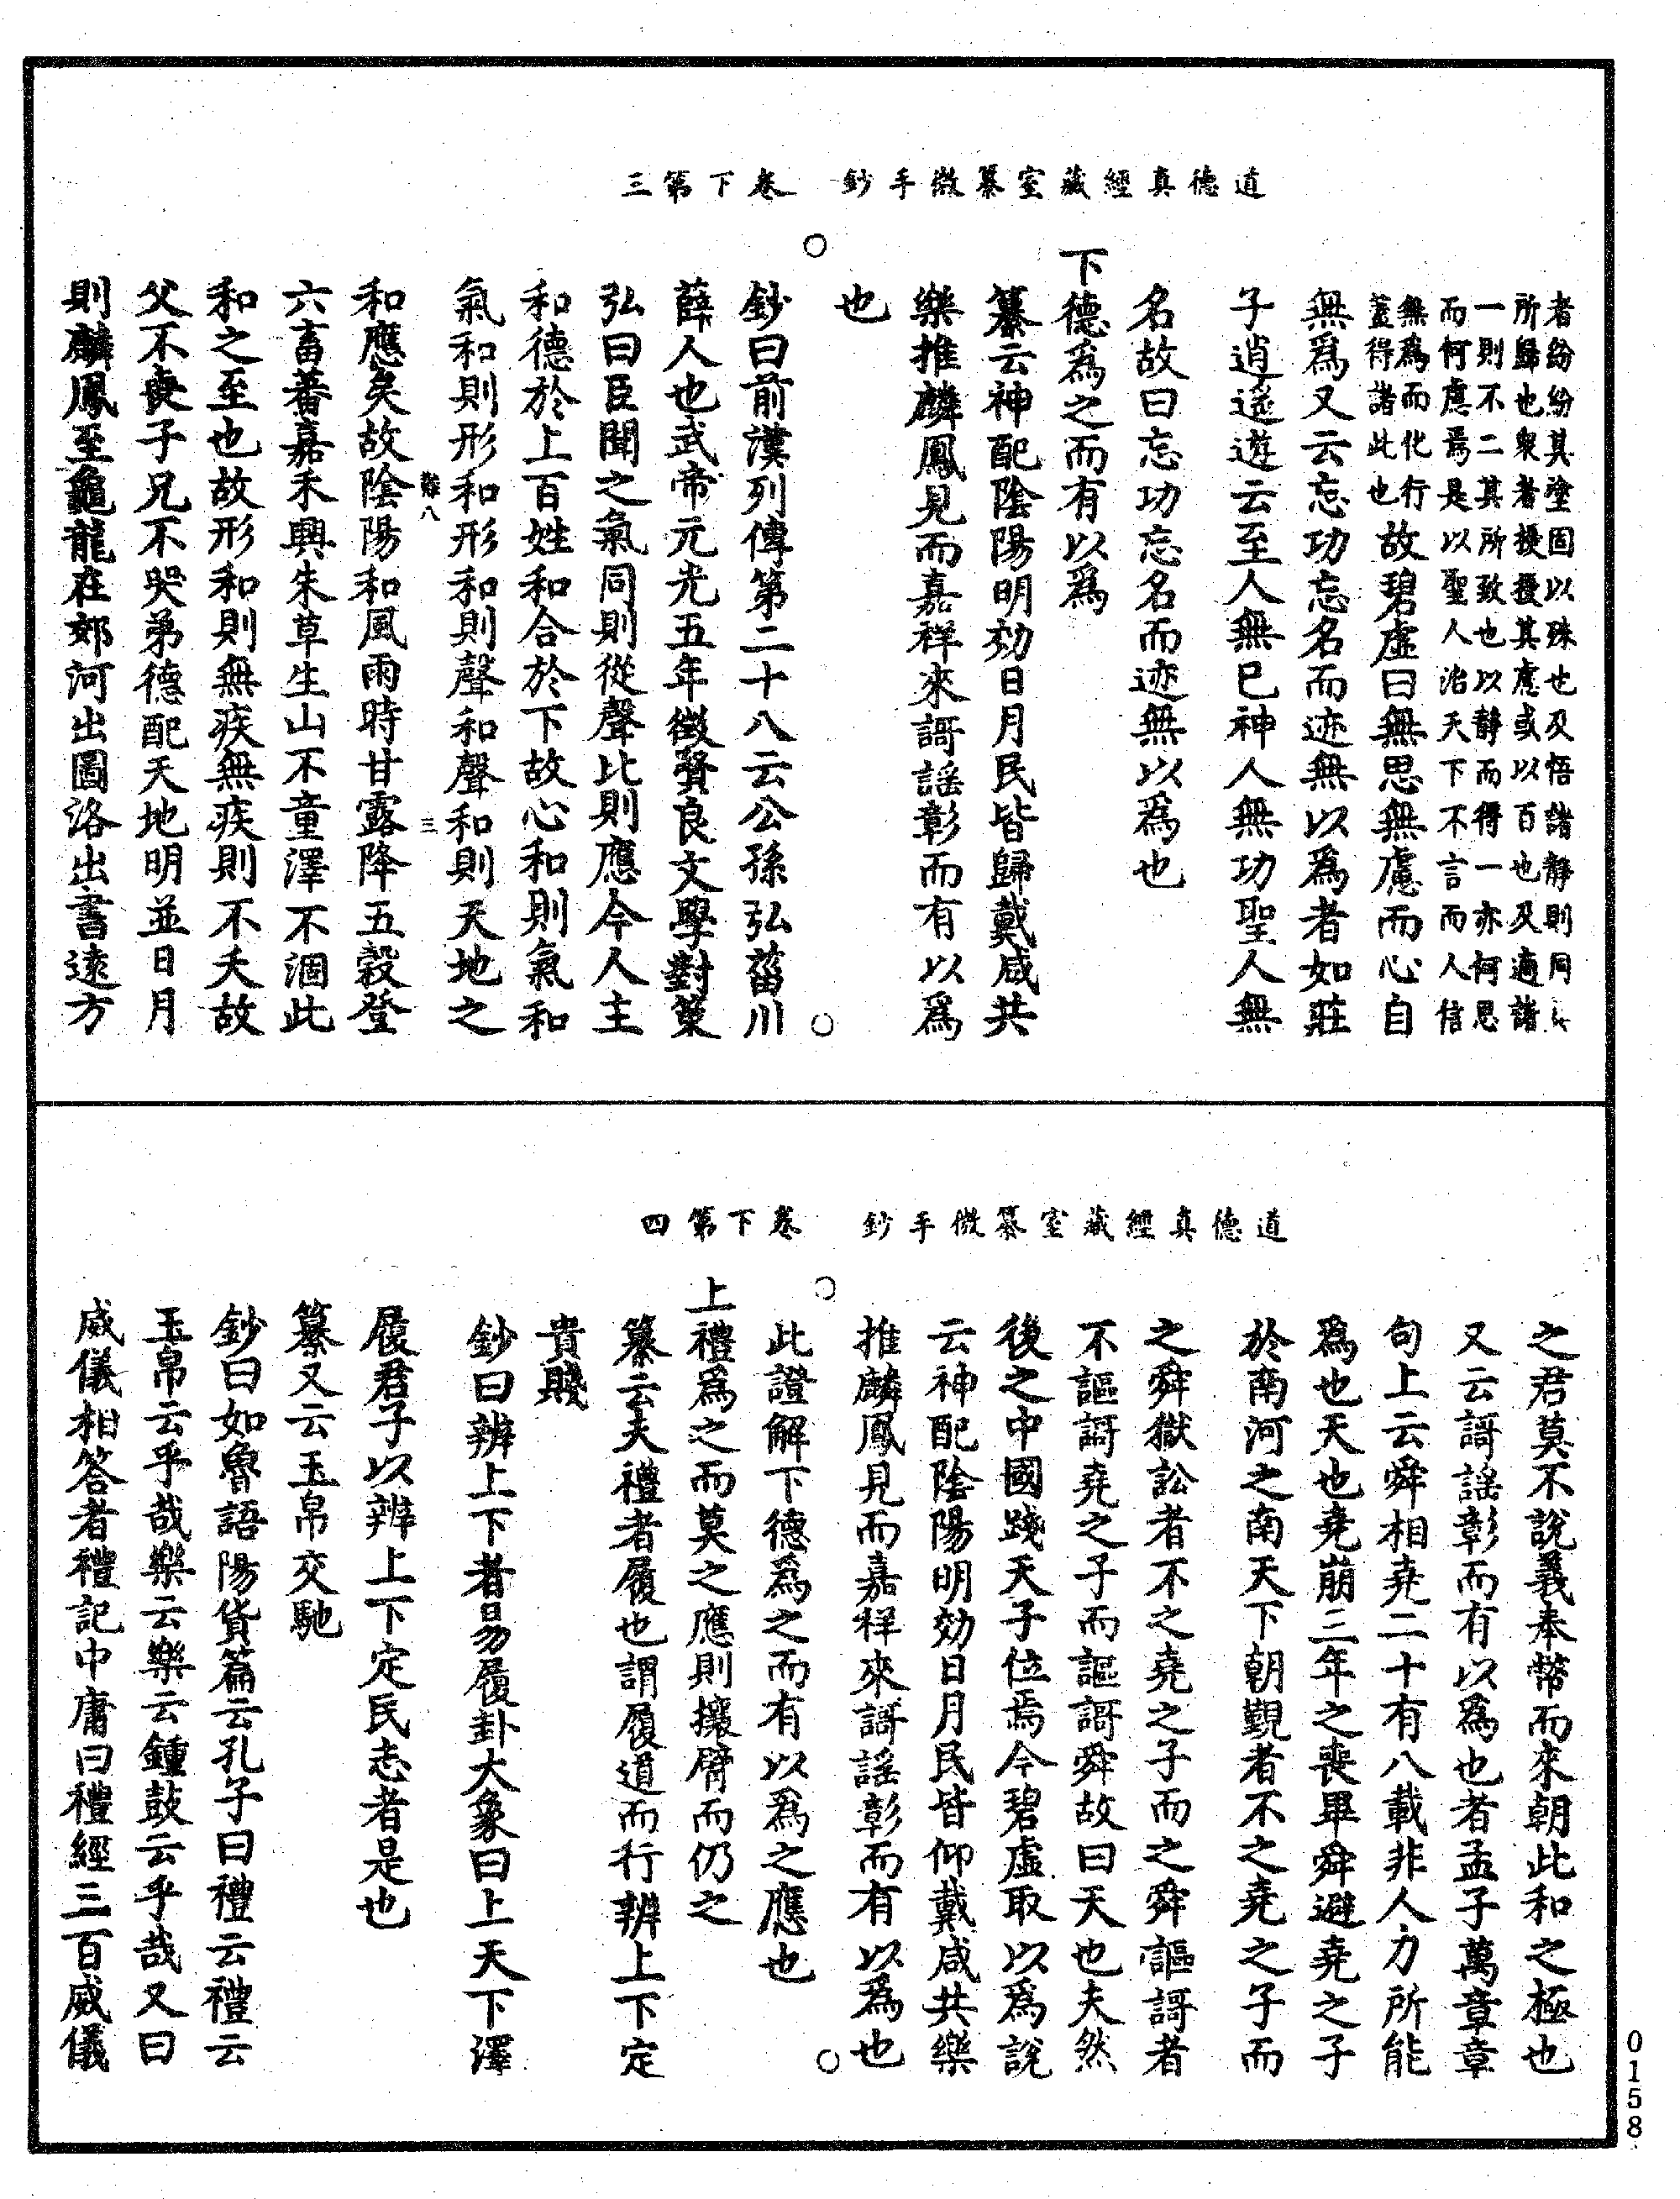 道德真經藏室纂微手鈔　卷下第三
者紛紛其塗固以殊也及悟諸靜則同
所歸也衆者擾擾其應或以百也及適諸
一則不二其所致也以靜而得一亦何思
而何應焉是以聖人治天下不言而人信
無為而化行
蓋得諸此也故碧虛曰無思無慮而心自
無爲又云忘功忘名而迹無以爲者如莊
子逍遥遊云至人無已神人無功聖人無
名故曰忘功忘名而迹無以爲也
下德爲之而有以爲
纂云神配陰陽明効日月民皆歸戴咸共
樂推麟鳳見而嘉祥來謌謡彰而有以爲
也
鈔曰前漢列傳第二十八云公孫弘菑川
薛人也武帝元光五年徵賢良文學對策
弘曰臣聞之氣同則從聲比則應今人主
和德於上百姓和合於下故心和則氣和
氣和則形和形和則聲和聲和則天地之
難八　三
和應矣故陰陽和風雨時甘露降五穀登
六畜蕃嘉禾興朱草生山不童澤不涸此
和之至也故形和則無疾無疾則不夭故
父不喪子兄不哭弟德配天地明並日月
則麟鳳至龜龍在郊河出圖洛出書遠方
道德真經藏室纂微手鈔　卷下第四
之君莫不說義奉幣而來朝此和之極也
又云謌謡彰而有以爲也者孟子萬章章
句上云舜相堯二十有八載非人力所能
爲也天也堯崩三年之喪畢舜避堯之子
於南河之南天下朝覲者不之堯之子而
之舜獄訟者不之堯之子而之舜謳謌者
不謳謌堯之子而謳謌舜故曰天也夫然
後之中國踐天子位焉今碧虛取以爲說
云神配陰陽明効日月民皆仰戴咸共樂
推麟鳳見而嘉祥來謌謡彰而有以為也
此證解下德爲之而有以爲之應也
上禮爲之而莫之應則攘臂而仍之
纂云夫禮者履也謂履道而行辨上下定
貴賤
鈔曰辨上下者易履卦大象曰上天下澤
履君子以辨上下定民志者是也
纂又云玉帛交馳
鈔曰如魯語陽貨篇云孔子曰禮云禮云
玉帛云乎哉樂云樂云鍾鼓云乎哉又曰
威儀相答者禮記中庸曰禮經三百威儀
0158